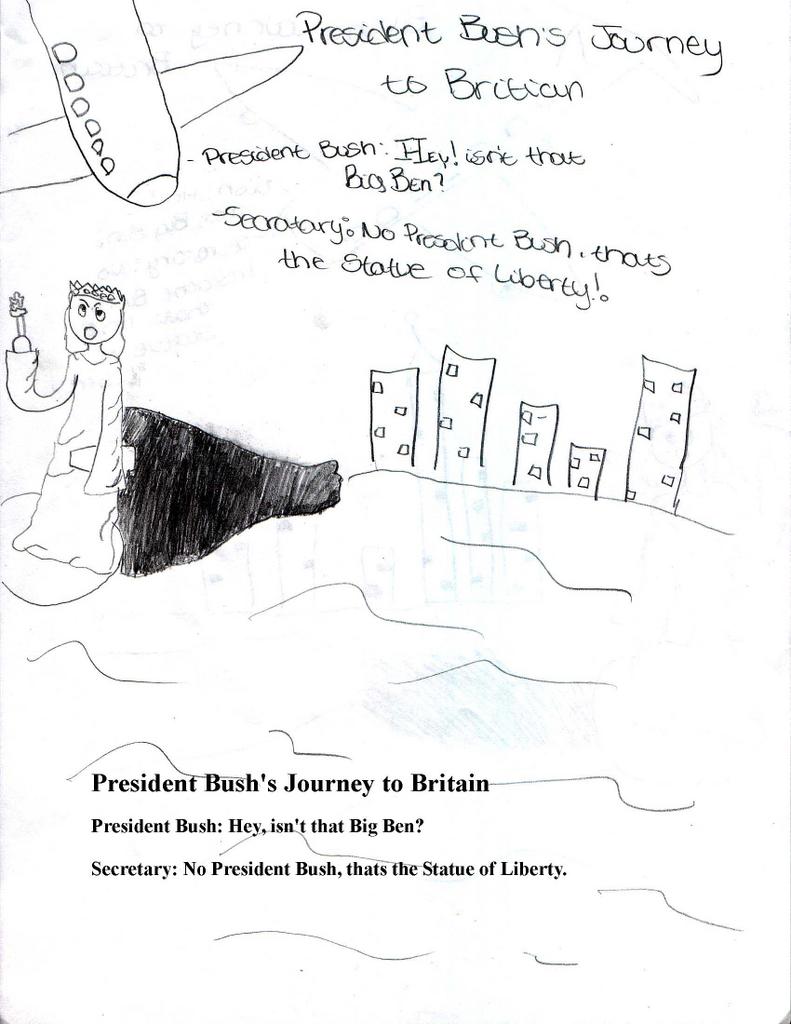 President Bush's Journey
to Britian
- President Bush: Hey! isn't that
Big Ben?
-Secratary: No President Bush, thats
the Statue of Liberty!
President Bush's Journey to Britain
President Bush: Hey, isn't that Big Ben?
Secretary: No President Bush, thats the Statue of Liberty.